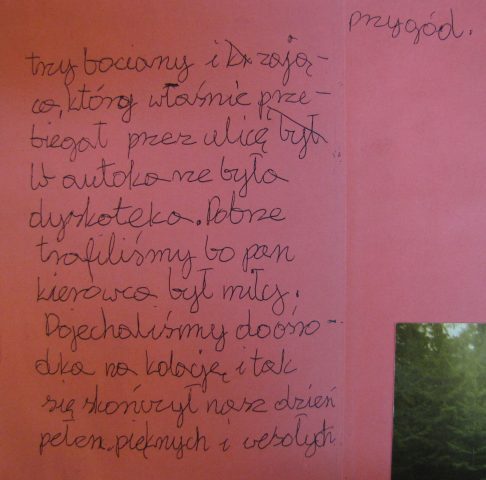 trzy bociany i zają-
ca, który właśnie prze-
biegał przez ulicę był
W autokarze była
dyskoteka. Dobrze
trafiliśmy bo pan
kierowca był miły.
Dojechaliśmy do ośro-
dka na kolację i tak
się skończył nasz dzień
pełen pięknych i wesołych
przygód.